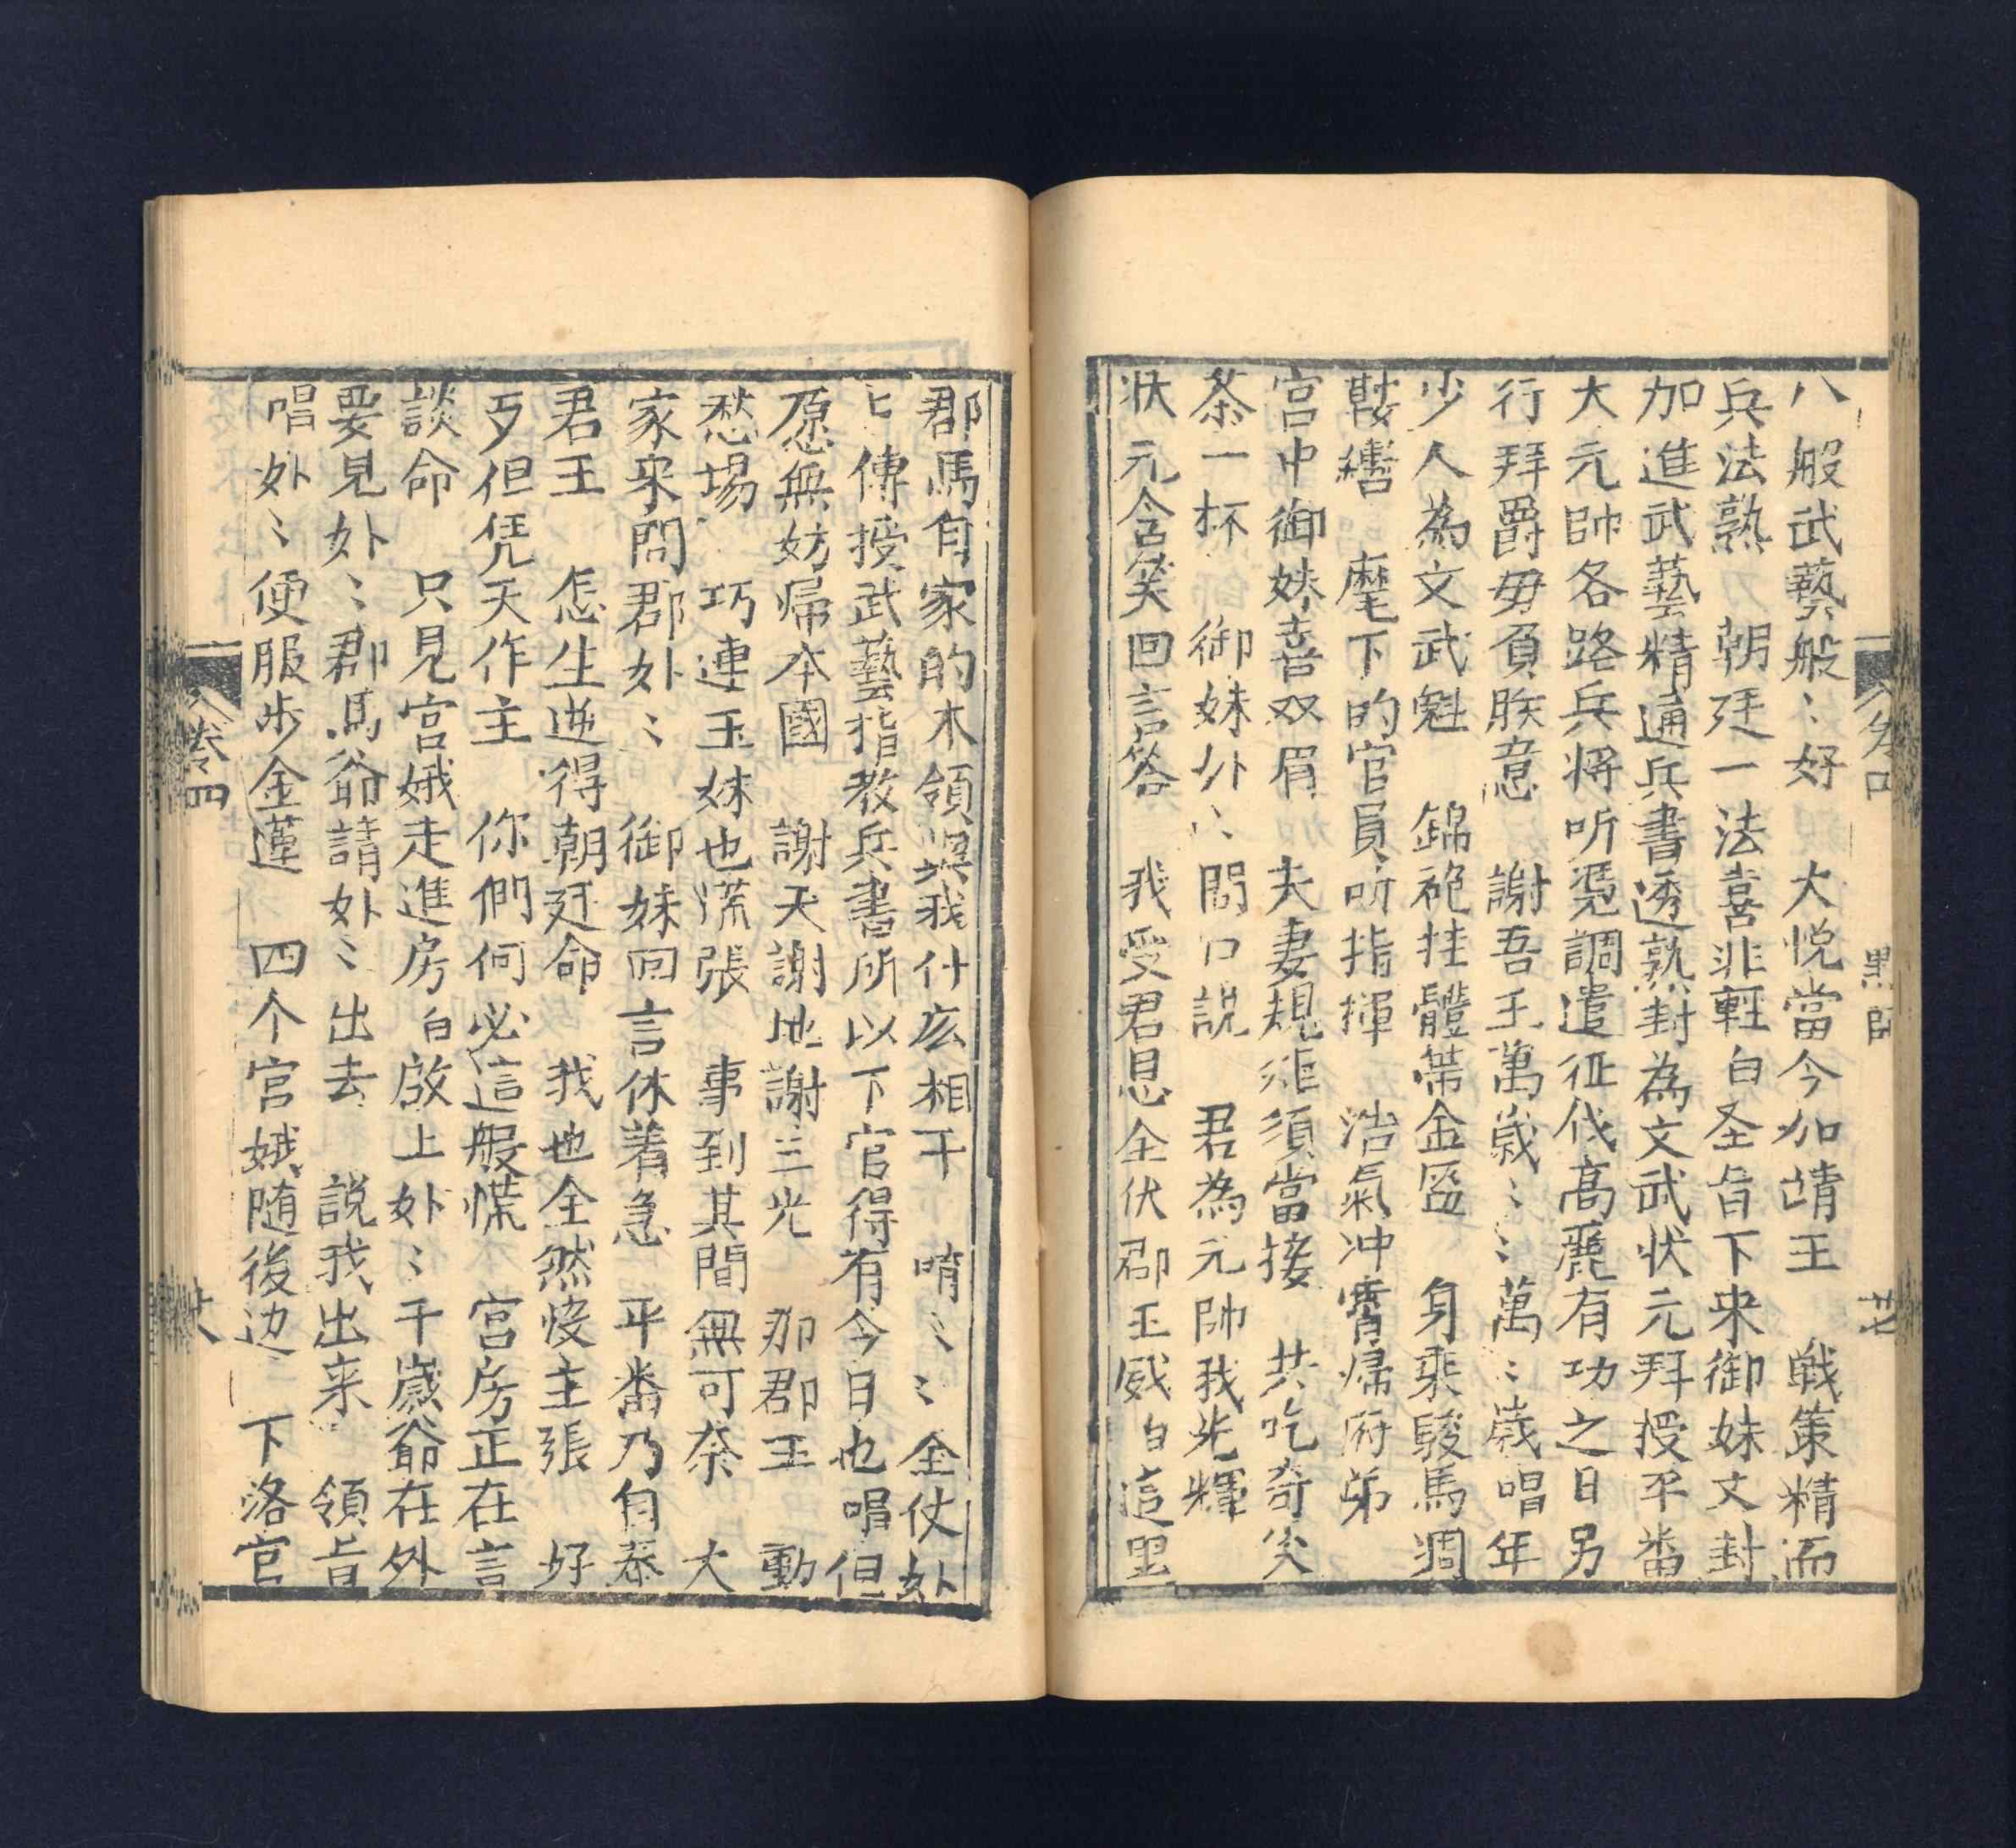 八般武藝般〻好　大悦當今加靖王　戦策精而
兵法熟　朝廷一法喜非輕白圣旨下来御妹文封
加進武藝精通兵書透熟封為文武状元拜授平番
大元帥各路兵将听凴調遣征伐高麗有功之日另
行拜爵毋負朕意　謝吾王萬歲〻〻萬〻歲唱年
少人為文武魁　錦袍挂體帶金盔　身乘駿馬凋
鞍轡　麾下的官員听指揮　浩氣冲霄帰府弟
宫中御妹喜双眉　夫妻規矩須當接　共吃奇尖
茶一杯　御妹外〻問口説　君為元帥我光輝
状元含笑回言答　我受君恩全伏郡王威白這里
郡馬自家的本領與我什庅相干　唷〻〻全仗外
〻傳授武藝指教兵書所以下官得有今日也唱但
愿無妨帰本國　謝天謝地謝三光　那郡王　動
愁場　巧連玉妹也慌張　事到其間無可奈　大
家来問郡外〻　御妹回言休着急　平番乃自奉
君王　怎生逆得朝廷命　我也全然没主張　好
歹但凭天作主　你們何必這般慌　宫房正在言
談命　只見宫娥走進房白啟上外〻千歲爺在外
要見外〻郡馬爺請外〻出去　説我出来　領旨
唱外〻便服步金蓮　四个宫娥随後边　下洛宫
卷四
黑師
廿七
卷四
廿八